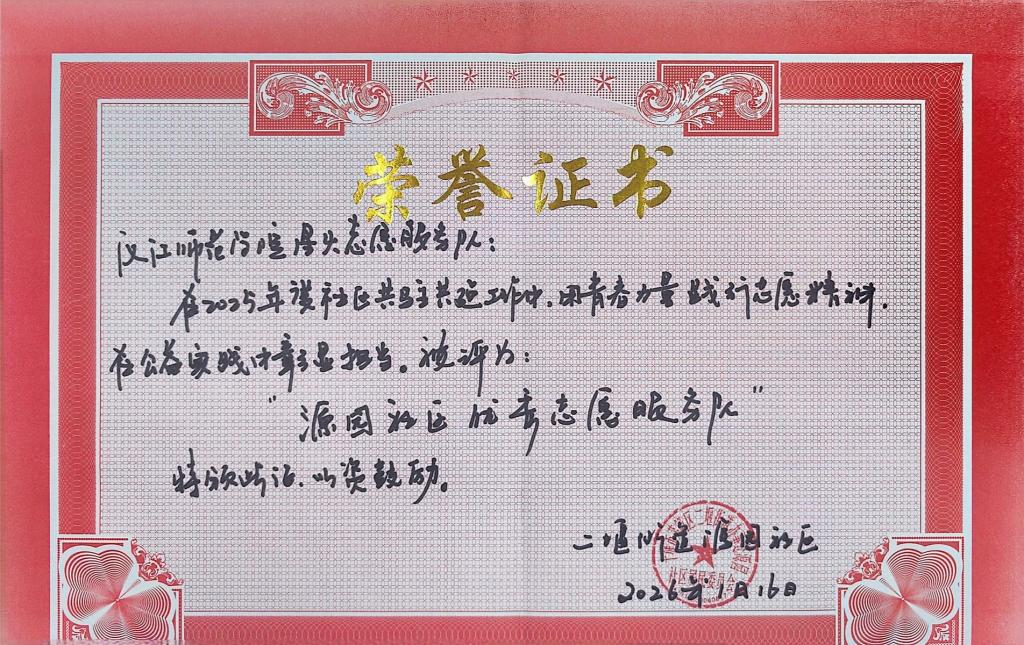 荣誉证书
汉江师范学院源头志愿服务队：
在2025年度社区共驻共建工作中，用青春力量践行志愿精神，
在公益实践中彰显担当。被评为：
“源园社区优秀志愿服务队”
特颁此证，以资鼓励。
二堰街道源园社区
社区居民委员会
2026年1月16日